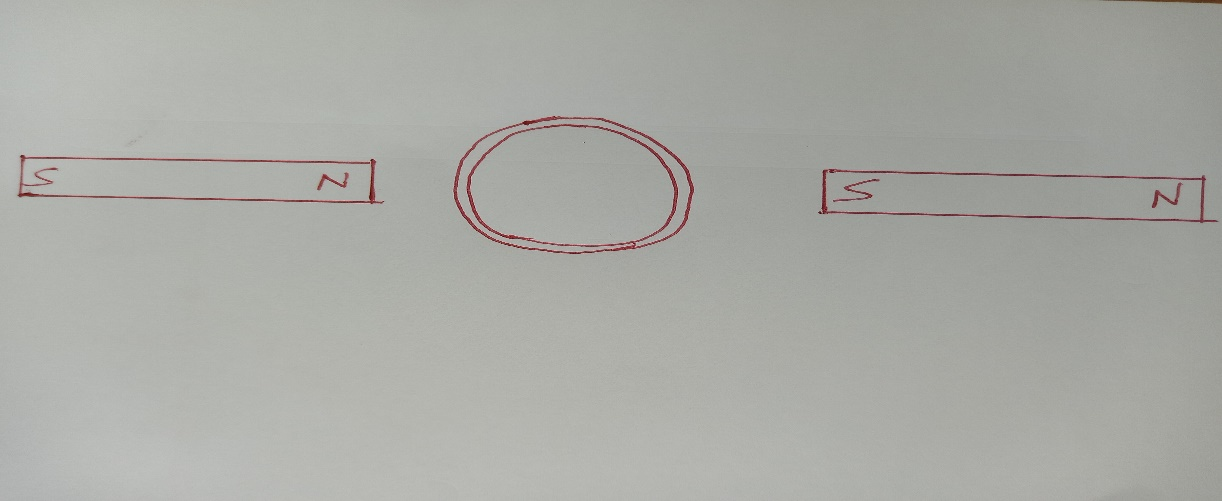 S N S N